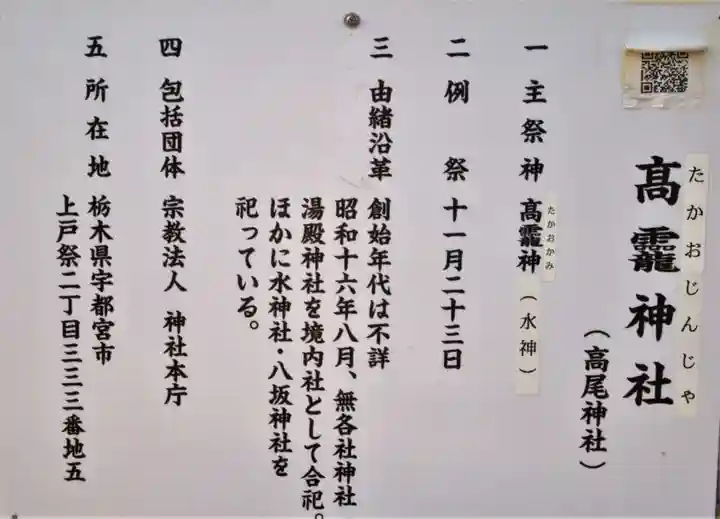 高龗神社
たかおじんじゃ
（高尾神社）
一 主祭神 高龗神（水神）
たかおかみ
二 例祭 十一月二十三日
三 由緒沿革 創始年代は不詳
昭和十六年八月、無各社神社
湯殿神社を境内社として合祀。
ほかに水神社・八坂神社を
祀っている。
四 包括団体 宗教法人 神社本庁
五 所在地 栃木県宇都宮市
上戸祭二丁目三三三番地五